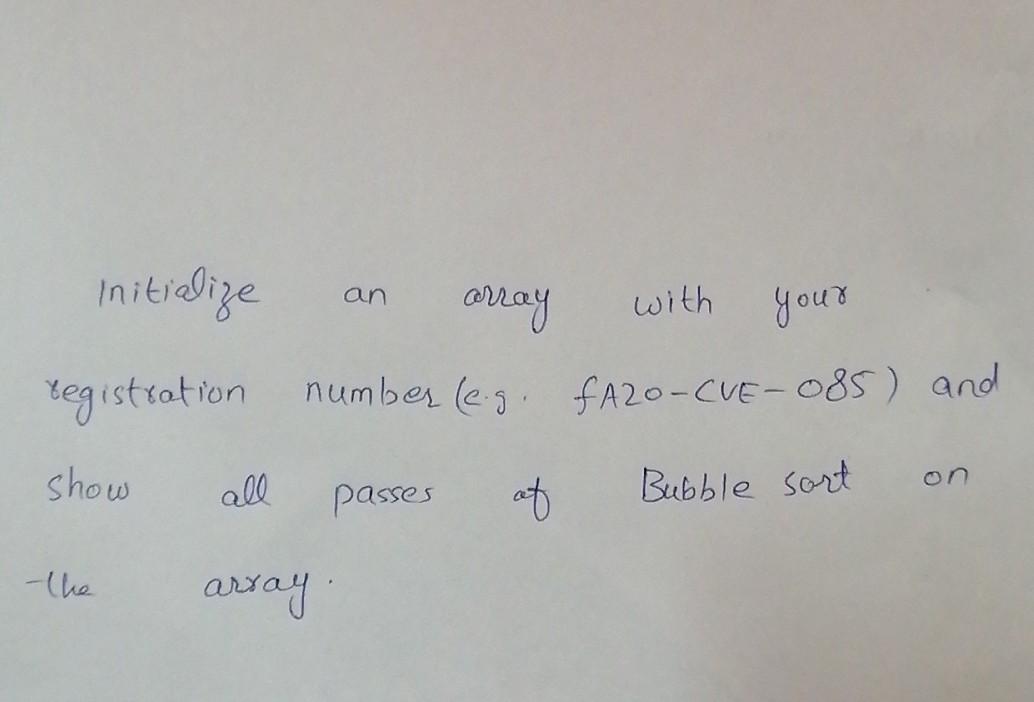 Initialize an array with your
registration number (e.g. fA20-CVE-085) and
show all passes of Bubble sort on
the array.